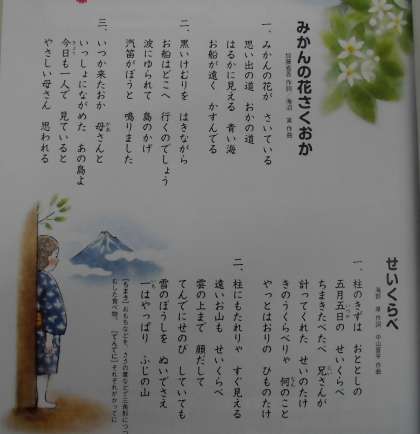 みかんの花さくおか
加藤省吾 作詞 海沼 実 作曲
一、みかんの花が さいている
思い出の道 おかの道
はるかに見える 青い海
お船が遠く かすんでる
二、黒いけむりを はきながら
お船はどこへ 行くのでしょう
波にゆられて 島のかげ
汽笛がぼうと 鳴りました
三、いつか来たおか 母さんと
いっしょにながめた あの島よ
今日も一人で 見ていると
やさしい母さん 思われる
せいくらべ
海野 厚 作詞 中山晋平 作曲
一、柱のきずは おととしの
五月五日の せいくらべ
ちまきたべたべ 兄さんが
計ってくれた せいのたけ
きのうくらべりゃ 何のこと
やっとはおりの ひものたけ
二、柱にもたれりゃ すぐ見える
遠いお山も せいくらべ
雲の上まで 顔だして
てんでにせのび していても
雪のぼうしを ぬいでさえ
一はやっぱり ふじの山
【ちまき】もち米などを、ささの葉などで三角形につつ
むした食べ物。【てんでに】それぞれがかってに